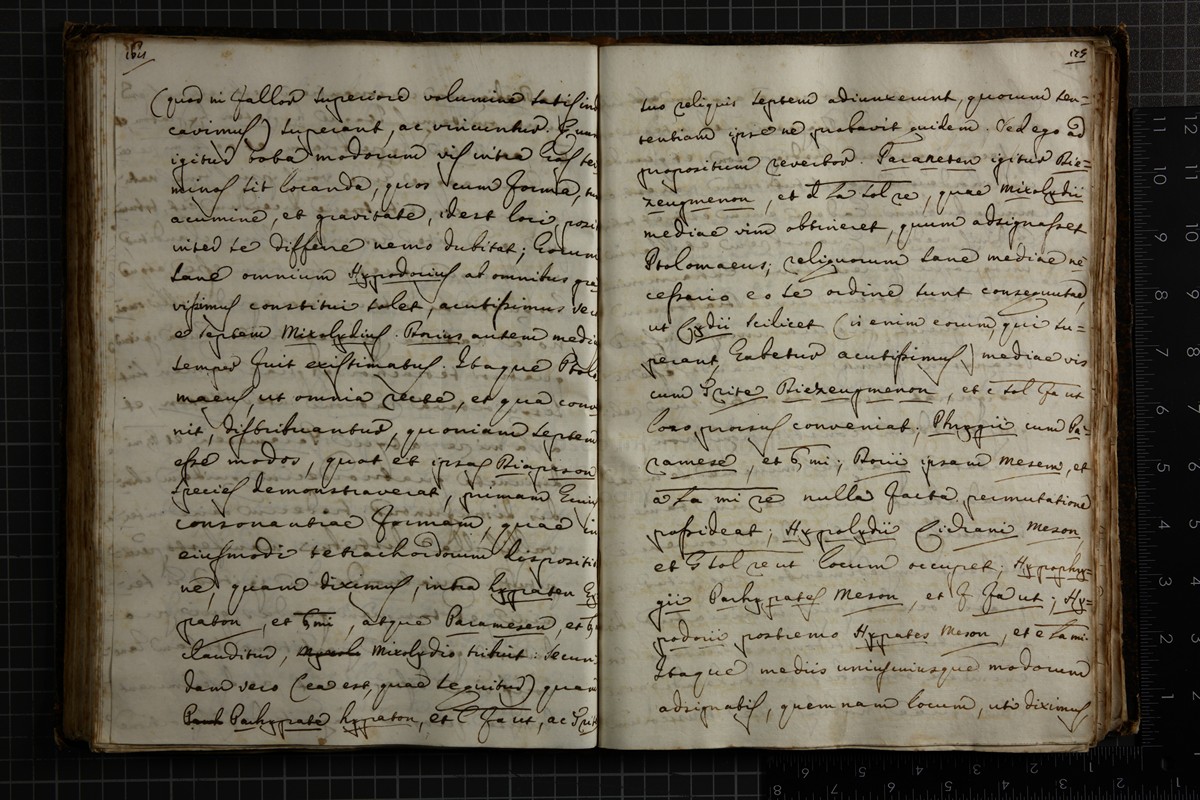 (quod ni fallor superiore volumine satis ind
cavimus) superant, ac vincuntur. Quum
igitur boba modorum vis intra hos ter
minos sit locanda, quos cum forma, tu
acumine, et gravitate, idest loci posi
inter se differre nemo dubitat; horum
sane omnium Hypodorius ab omnibus gra
vissimus constitui solet, acutissimus vero
e septem Mixolydius. Dorius autem mediu
semper fuit existimatus. Itaque Ptolo
maeus, ut omnia recte, et qua conve
nit, distribuantur, quoniam septem
esse modos, quot et ipsas Diapason
species demonstraverat, primam huius
consonantiae formam, quae in
eiusmodi tetrachordorum dispositio
ne, quam diximus, intra hypaton Hy
paton, et ♮ mi, atque Paramesen, et ♮
clauditur, Mixolydio tribuit: secun
dam vero (ea est, quae sequitur) quam
Parhypate hypaton, et C fa ut, ac Trit
175
suo reliquis septem adiunxerunt, quorum sen=
tentiam ipse ne probavit quidem. Sed ego ad
propositum revertor. Paraneten igitur Die=
zeugmenon, et d la sol re, quae Mixolydii
mediae vim obtineret, quum adsignasset
Ptolomaeus; reliquorum sane mediae ne
cessario eo se ordine sunt consequutae,
ut Lydii scilicet (is enim eorum, qui su=
perant, habetur acutissimus) mediae vis
cum Trite Diezeugmenon, et c sol fa ut
loco prorsus conveniat; Phrygii cum Pa=
ramese, et ♮ mi; Dorii ipsam Mesem, et
a la mi re nulla facta permutatione
possideat; Hypolydii Lichani Meson
et G sol re ut locum occupet; Hypophry=
gii Parhypates Meson, et F fa ut; Hy=
podorii postremo Hypates Meson, et e la mi.
Itaque mediis uniuscuiusque modorum
adsignatis, quemnam locum, uti diximus,